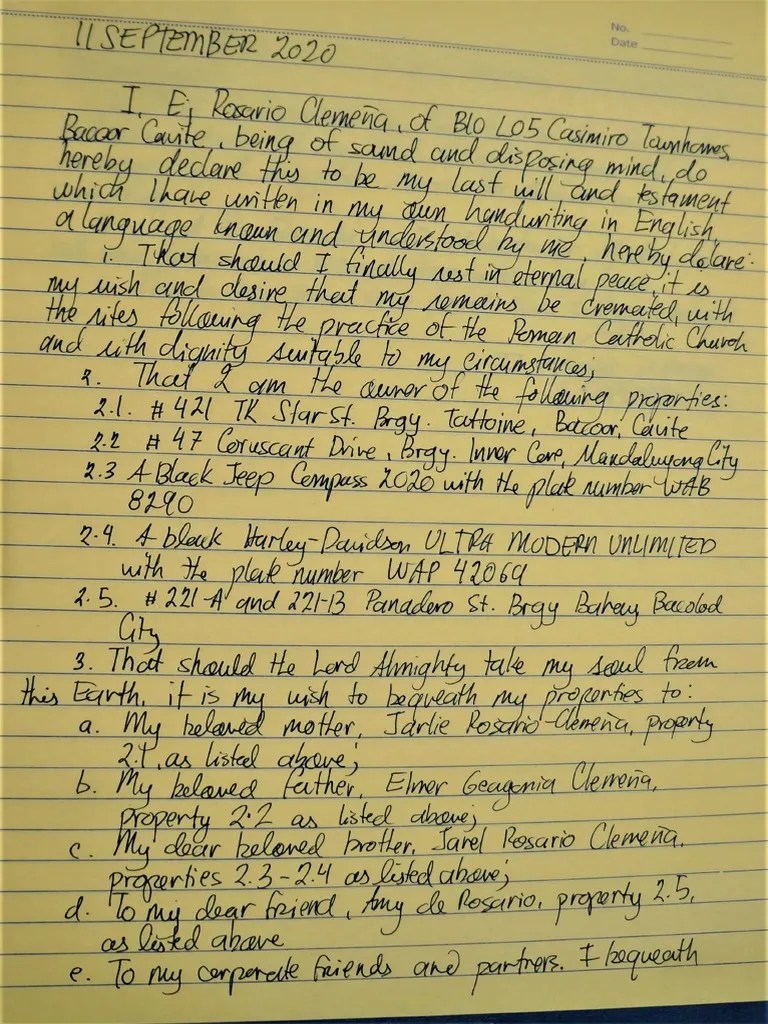 No.
Date
11 SEPTEMBER 2020
I, Ej Rosario Clemeña, of B10 L05 Casimiro Townhomes,
Bacoor Cavite, being of sound and disposing mind, do
hereby declare this to be my last will and testament
which I have written in my own handwriting in English,
a language known and understood by me, hereby declare:
1. That should I finally rest in eternal peace, it is
my wish and desire that my remains be cremated, with
the rites following the practice of the Roman Catholic Church
and with dignity suitable to my circumstances;
2. That I am the owner of the following properties:
2.1. #421 TK Star St. Brgy. Tattoine, Bacoor, Cavite
2.2 #47 Coruscant Drive, Brgy. Inner Core, Mandaluyong City
2.3 A Black Jeep Compass 2020 with the plate number WAB
8290
2.4. A black Harley-Davidson ULTRA MODERN UNLIMITED
with the plate number WAP 42069
2.5. #221-A and 221-B Panadero St. Brgy Bahay Bacolod
City
3. That should the Lord Almighty take my soul from
this Earth, it is my wish to bequeath my properties to:
a. My beloved mother, Jarlie Rosario-Clemeña, property
2.1, as listed above;
b. My beloved father, Elmer Geagonia Clemeña,
property 2.2 as listed above;
c. My dear beloved brother, Jarel Rosario Clemeña,
properties 2.3-2.4 as listed above;
d. To my dear friend, Amy de Rosario, property 2.5,
as listed above
e. To my corporate friends and partners. I bequeath